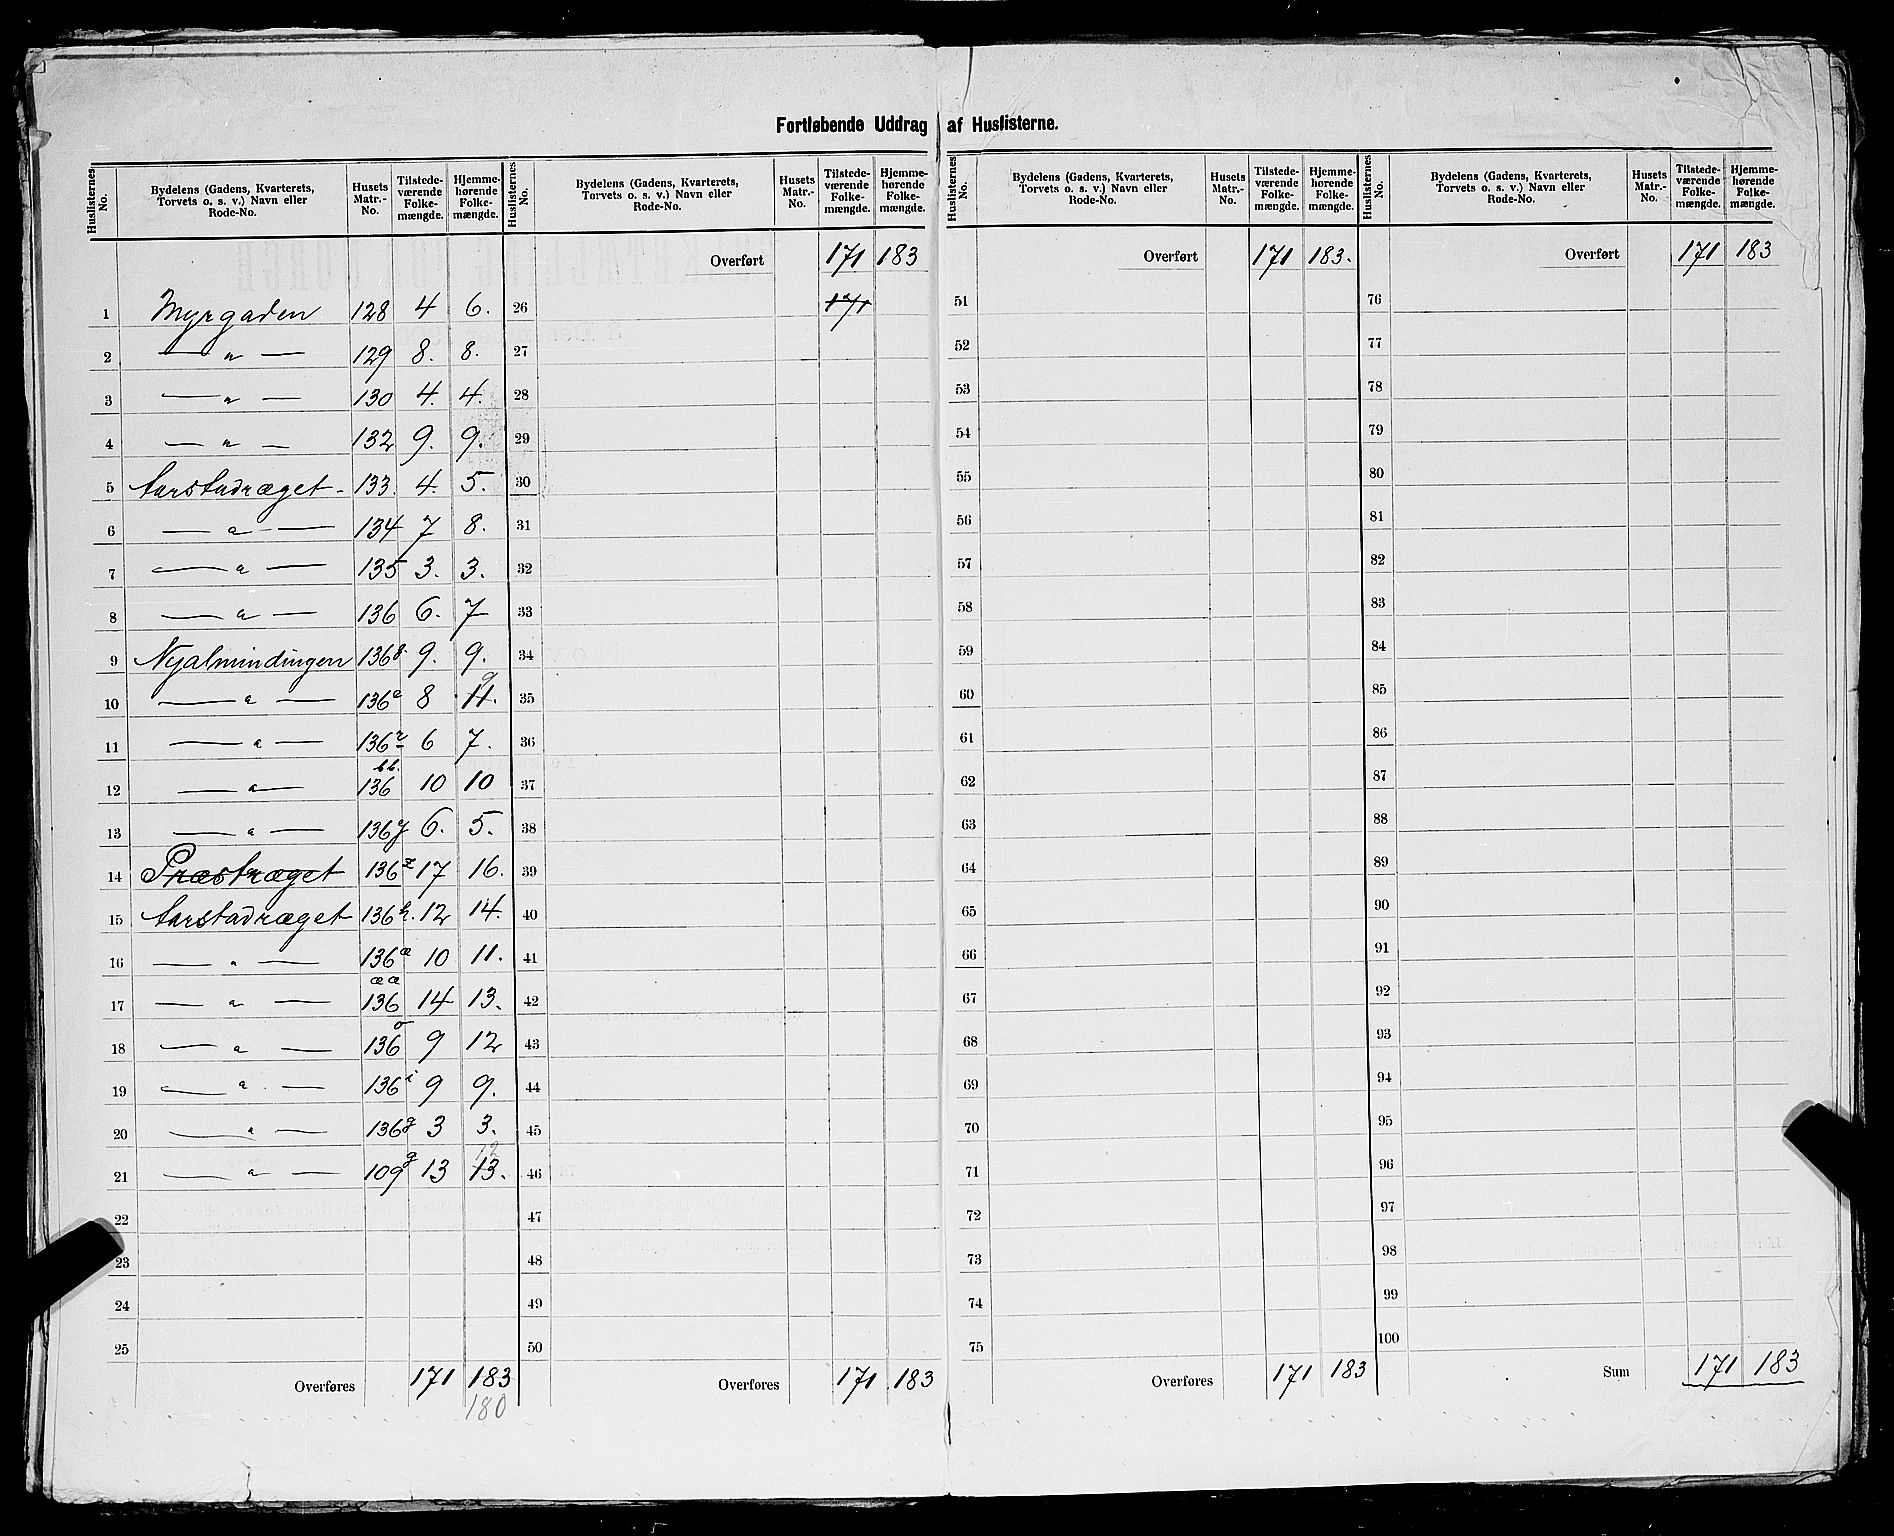 Fortløbende Uddrag af Huslisterne.
Huslisternes No. | Bydelens (Gadens, Kvarterets, Torvets o. s. v.) Navn eller Rode-No. | Husets Matr.-No. | Tilstedeværende Folkemængde. | Hjemmehørende Folkemængde.
1 Myrgaden 128 4 6.
2 — „ — 129 8. 8.
3 — „ — 130 4. 4.
4 — „ — 132 9. 9.
5 Aarstadræget 133. 4. 5.
6 — „ — 134 7 8.
7 — „ — 135 3. 3.
8 — „ — 136 6. 7
9 Nyalmindingen 136 9. 9.
10 — „ — 136 8 11. 9
11 — „ — 136 6 7.
12 — „ — 136 bb. 10 10
13 — „ — 136y 6. 5.
14 Præstræget 136z 17 16.
15 Aarstadræget 136h. 12 14.
16 — „ — 136æ 10 11.
17 — „ — 136 ææ 14 13.
18 — „ — 136 ö 9 12
19 — „ — 136i 9 9.
20 — „ — 136g 3 3.
21 — „ — 109g 13 13. 12
22
23
24
25
Overføres 171 183
180
Huslisternes No. | Bydelens (Gadens, Kvarterets, Torvets o. s. v.) Navn eller Rode-No. | Husets Matr.-No. | Tilstedeværende Folkemængde. | Hjemmehørende Folkemængde.
Overført 171 183
26 171
27
28
29
30
31
32
33
34
35
36
37
38
39
40
41
42
43
44
45
46
47
48
49
50
Overføres 171 183
Huslisternes No. | Bydelens (Gadens, Kvarterets, Torvets o. s. v.) Navn eller Rode-No. | Husets Matr.-No. | Tilstedeværende Folkemængde. | Hjemmehørende Folkemængde.
Overført 171 183.
51
52
53
54
55
56
57
58
59
60
61
62
63
64
65
66
67
68
69
70
71
72
73
74
75
Overføres 171 183
Huslisternes No. | Bydelens (Gadens, Kvarterets, Torvets o. s. v.) Navn eller Rode-No. | Husets Matr.-No. | Tilstedeværende Folkemængde. | Hjemmehørende Folkemængde.
Overført 171 183
76
77
78
79
80
81
82
83
84
85
86
87
88
89
90
91
92
93
94
95
96
97
98
99
100
Sum 171 183